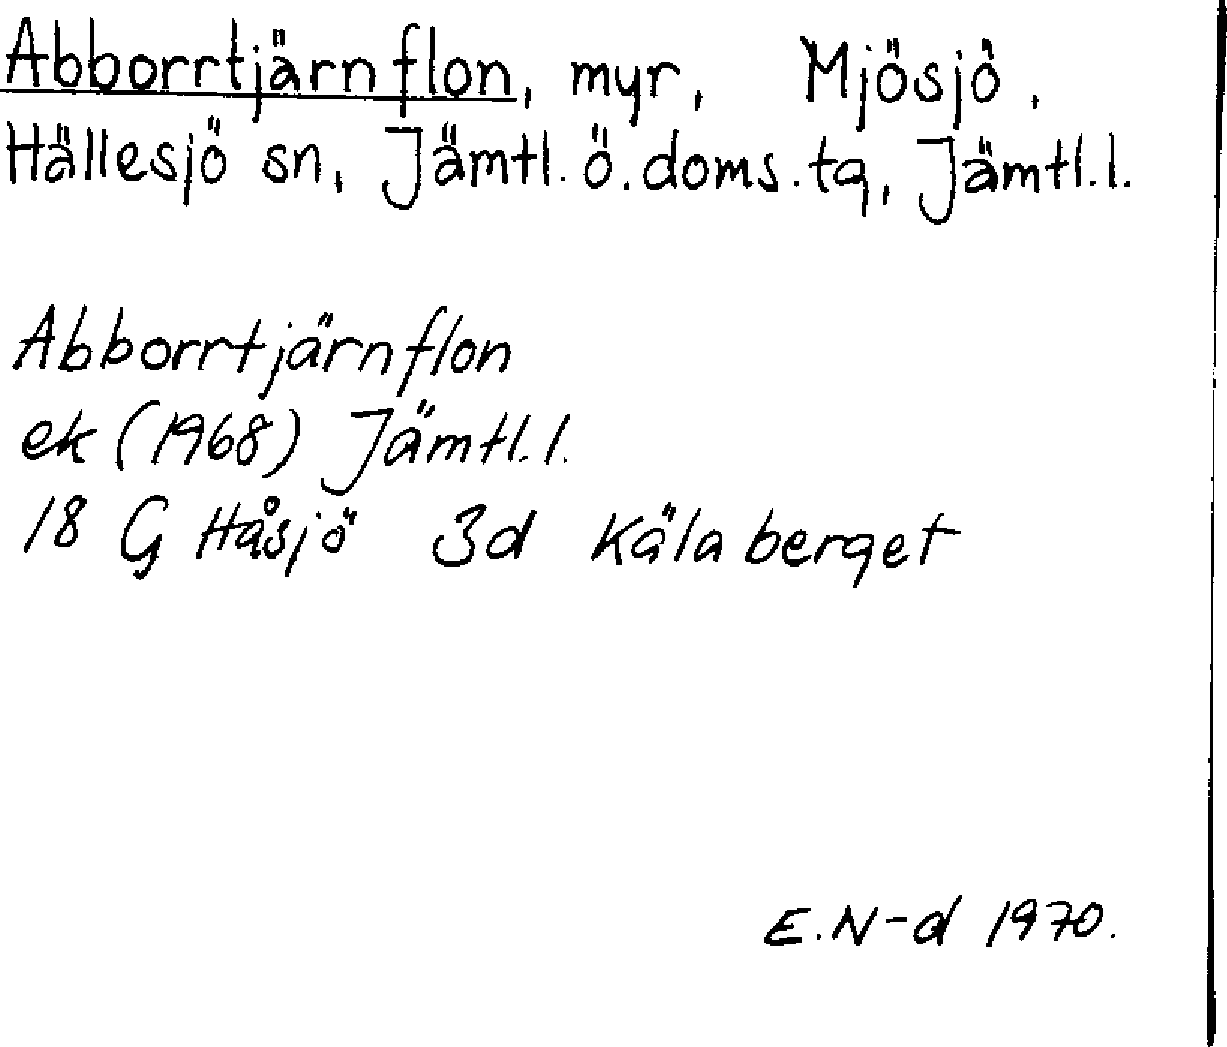 Abborrtjärnflon, myr, Mjösjö.
Hällesjö sn, Jämtl. ö. doms. tg, Jämtl. l.
Abborrtjärnflon
ek (1968) Jämtl. l.
18 G Håsjö 3d Kälaberget
E. N-d 1970.